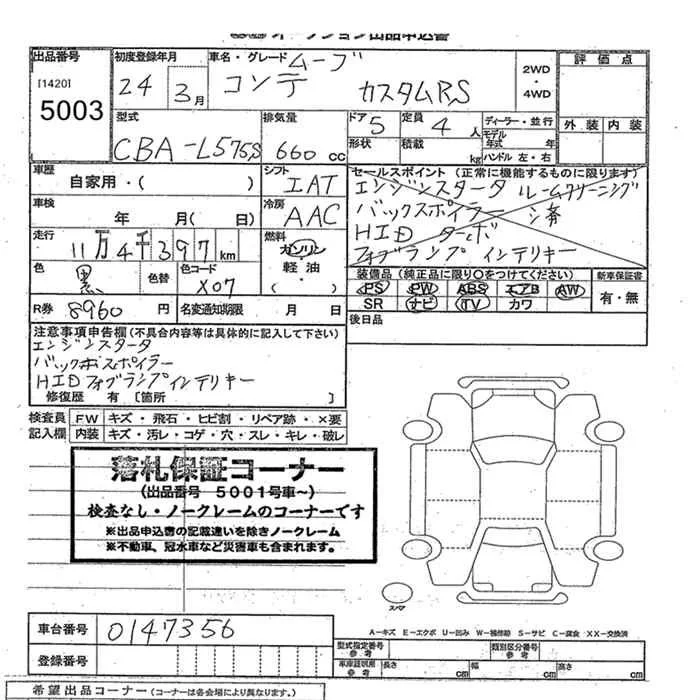 オークション出品申込書
出品番号 初度登録年月 車名・グレード 評価点
[1420] 24年 3月 ムーブ コンテ カスタムRS 2WD・4WD
5003
型式 排気量 ドア 5 定員 4人 ディーラー・並行 外装 内装
CBA-L575S 660cc 形状 積載 kg モデル年式 年 ハンドル 左・右
車歴 シフト セールスポイント(正常に機能するものに限ります)
自家用・( ) IAT エンジンスタータ ルームクリーニング
車検 冷房 バックスポイラー 済
年 月( 日) AAC HID ターボ
走行 燃料 フォグランプ インテリキー
11万4千397km ガソリン・軽油・( )
色 黒 色替 色コード X07 装備品(純正品に限り○をつけてください) 新車保証書
PS PW ABS エアB AW 有・無
SR ナビ TV カワ
R券 8960円 名変通知期限 月 日 後日品
注意事項申告欄(不具合内容等は具体的に記入して下さい)
エンジンスタータ
バックスポイラー
HID フォグランプ インテリキー
修復歴 有 [箇所 ]
検査員 FW キズ・飛石・ヒビ割・リペア跡・×要
記入欄 内装 キズ・汚レ・コゲ・穴・スレ・キレ・破レ
落札保証コーナー
(出品番号 5001号車~)
検査なし・ノークレームのコーナーです
※出品申込書の記載違いを除きノークレーム
※不動車、冠水車など災害車も含まれます。
スペア
車台番号 0147356
A-キズ E-エクボ U-凹み W-補修跡 S-サビ C-腐食 XX-交換済
登録番号 型式指定番号 参考 類別区分番号 参考
車庫証明用 参考 長さ cm 幅 cm 高さ cm
希望出品コーナー(コーナーは各会場により異なります。)